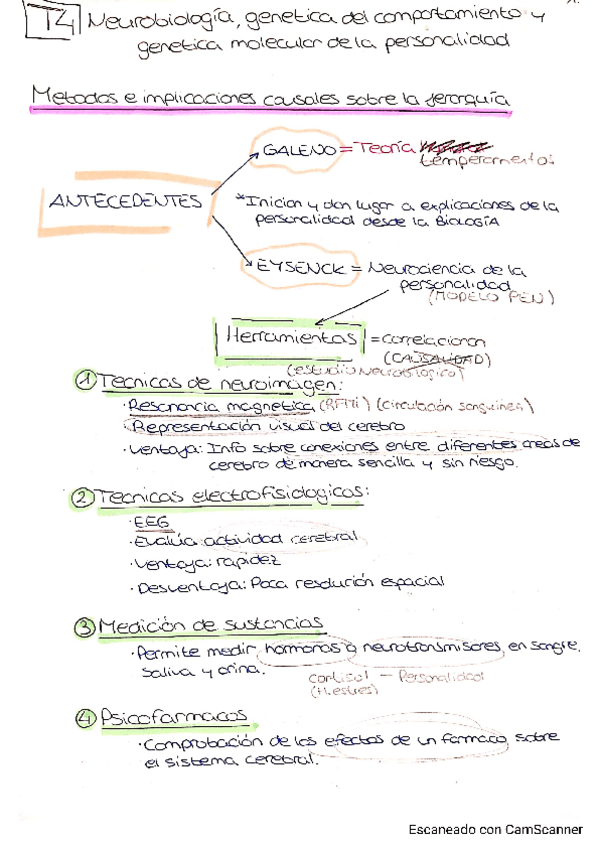 T4 Neurobiología, genetica del comportamiento y
genetica molecular de la personalidad
Metodos e implicaciones causales sobre la jerarquía
GALENO = Teoría
temperamentos
ANTECEDENTES
*Inician y dan lugar a explicaciones de la
personalidad desde la BIOLOGÍA
EYSENCK = Neurociencia de la
personalidad
(MODELO PEN)
Herramientas = correlacionan
(CAUSALIDAD)
(estudio Neurobiologico)
① Tecnicas de neuroimagen:
·Resonancia magnetica (RFMi) (circulación sanguinea)
·Representación visual del cerebro
·Ventaja: Info sobre conexiones entre diferentes areas de
cerebro de manera sencilla y sin riesgo.
② Tecnicas electrofisiologicas:
·EEG
·Evalúa: actividad cerebral
·Ventaja: rapidez
·Desventaja: Poca resolución espacial
③ Medición de sustancias
·Permite medir hormonas o neurotransmisores, en sangre,
saliva y orina.
cortisol — Personalidad
(H.estres)
④ Psicofarmacos
·Comprobación de los efectos de un farmaco sobre
el sistema cerebral.
Escaneado con CamScanner